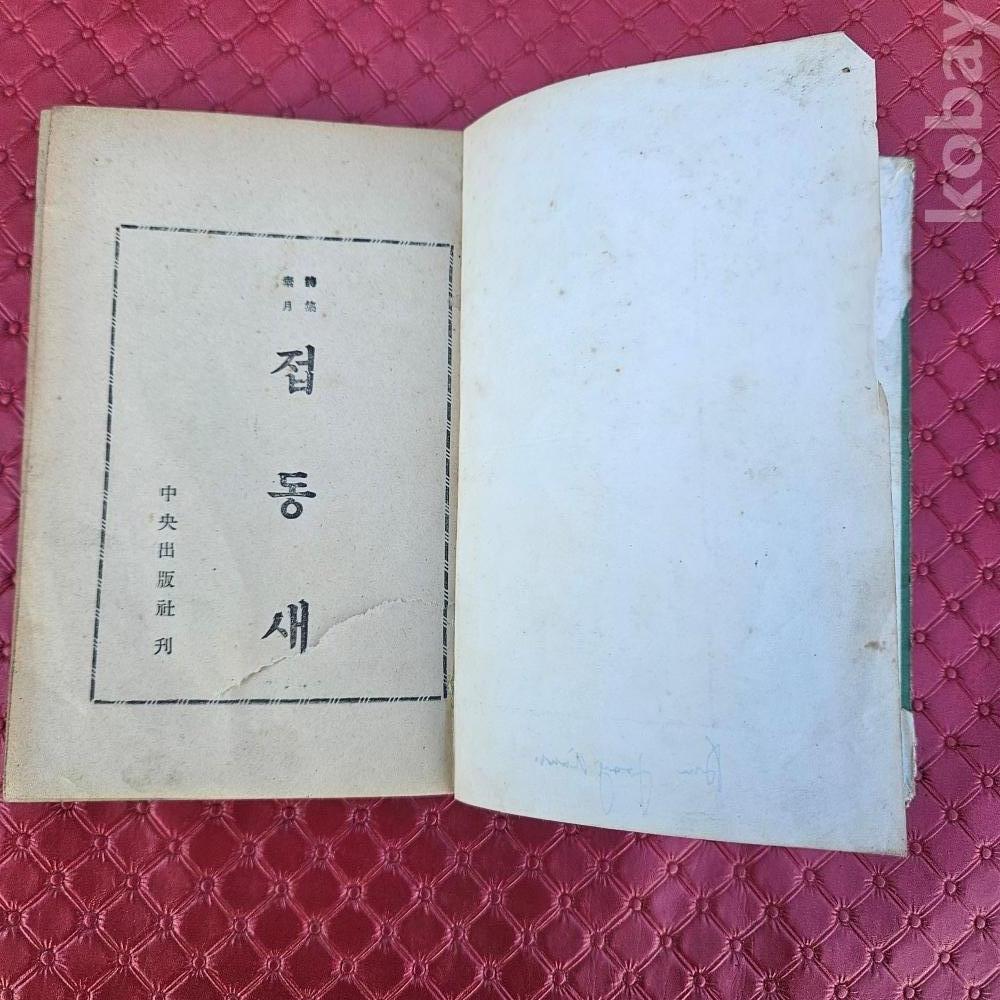 詩集
素月
접동새
中央出版社 刊
kobay